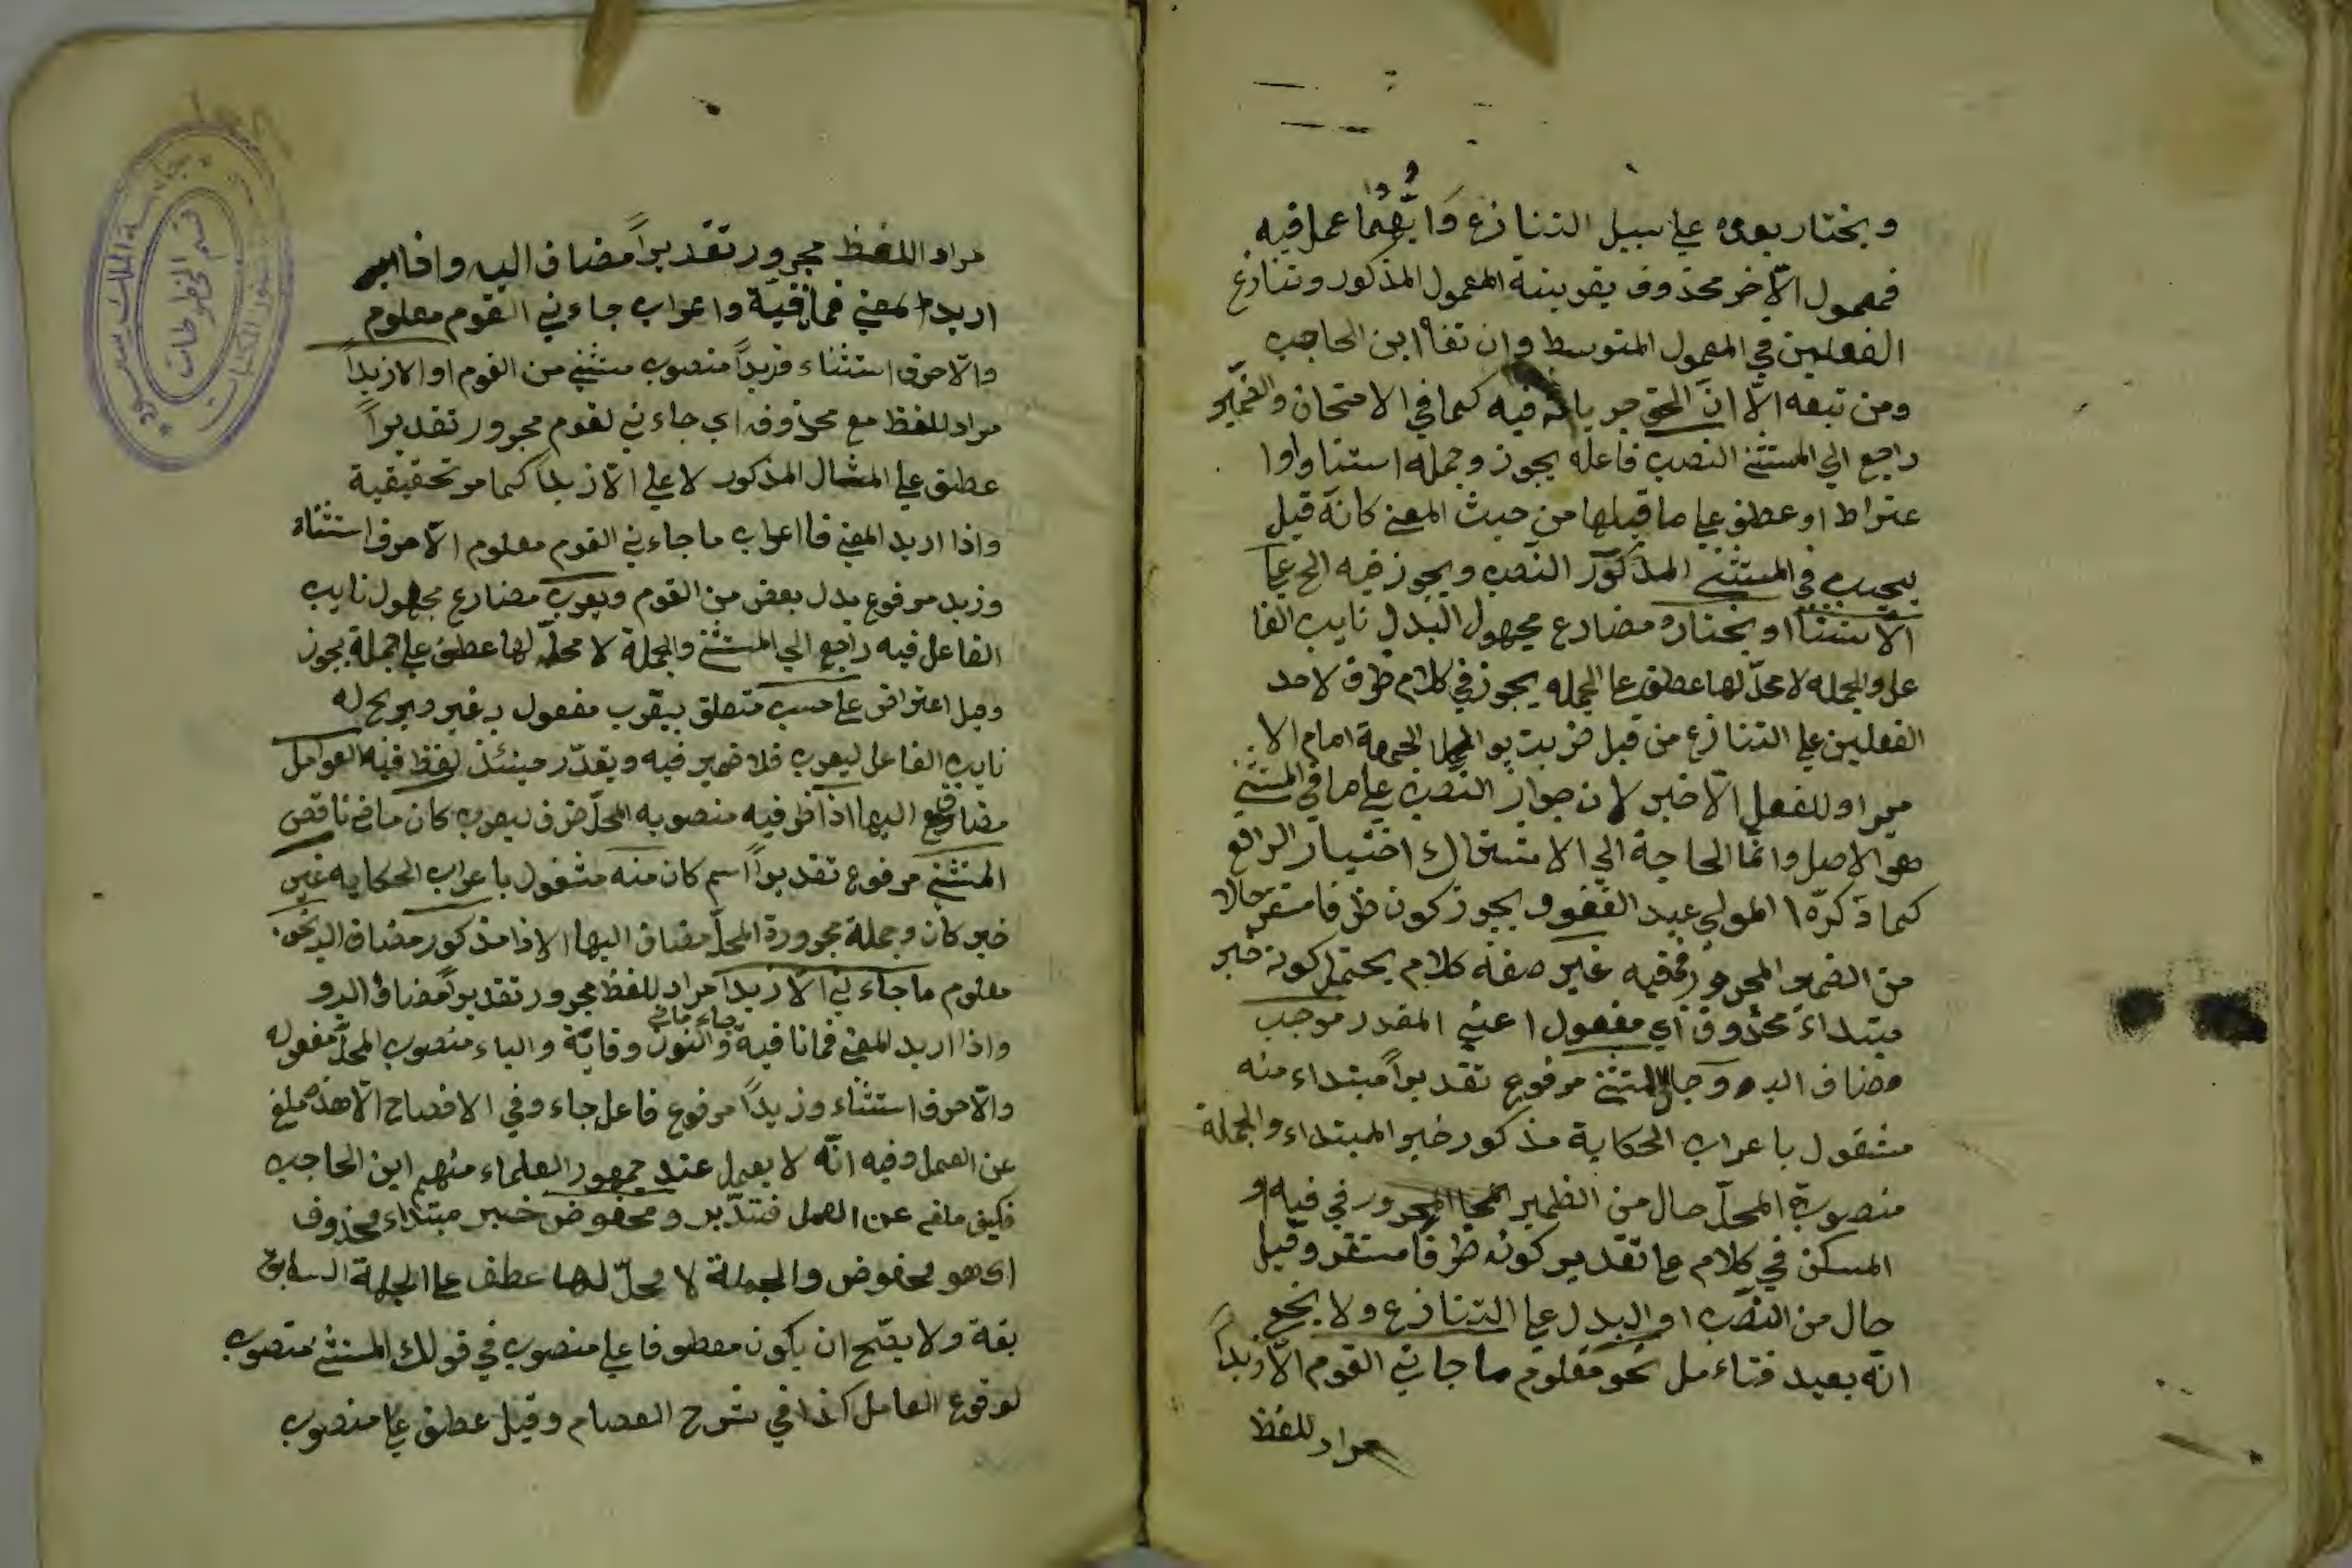 ويختار يعرى على سبيل التنازع وايهما عمل فيه
فمعمول الآخر محذوف بقرينة المعمول المذكور وتنازع
الفعلين في المعمول المتوسط وان نفاه ابن الحاجب
ومن تبعه الّا انّ الحق جريانه فيه كما في الامتحان والضمير
راجع الي المستثنى النصب فاعله يجوز وجمله استينا واوا
عتراط او عطف علي ما قبلها من حيث المعنى كانّه قيل
يجب في المستثنى المذكور النصب ويجوز فيه الخ علي
الاستثنا او يختار مضارع مجهول البدل نايب الفا
عل والجمله لا محلّ لها عطف علي الجمله يجوز في كلام ظرف لاحد
الفعلين علي التنازع من قبيل ضربت يوم الجمعة امام الا
مير او للفعل الآخير لان جواز النصب علي ما في المستثنى
هو الاصل وانّما الحاجة الي الاشتراك اختيار الرافع
كما ذكره المولى عبد الغفور ويجوز كون ظرفا مستقر حالا
من الضمير المجرور فيه غير صفة كلام يحتمل كونه خبر
مبتداء محذوف اي مفعول اعني المقدر موجب
مضاف اليه و المستثنى مرفوع تقديراً مبتداء منه
مشغول باعراب الحكاية مذكور خبر المبتداء والجملة
منصوبة المحلّ حال من الظمير المجرور في فيه او
المسكن في كلام علي تقدير كونه ظرفا مستقر وقيل
حال من النصب او البدل علي التنازع ولا يخفى
انّه بعيد فتاءمل نحو معلوم ما جاءني القوم الّا زيداً
مراد للفظ
مراد اللفظ مجرور تقديراً مضاف اليه واذا
اريد المعني فما نافيّة واعراب جاءني القوم معلوم
والّا حرف استثناء فزيداً منصوب مستثنى من القوم او الا زيداً
مراد للفظ مع محذوفه اي جاءني لقوم مجرور تقديراً
عطف علي المثال المذكور لا علي الّا زيداً كما مر تحقيقية
واذا اريد المعني فا اعراب ما جاءني القوم معلوم الّا حرف استثناء
وزيد مرفوع بدل بعض من القوم ويعرب مضارع مجهول نايب
الفاعل فيه راجع الي المستثنى والجملة لا محلّ لها عطف علي جملة يجوز
وقيل اعتراض علي حسب متعلق بيعرب مفعول به غير صريح له
نايب الفاعل ليعرب فلا ضمير فيه ويقدّر حينئذ لفظ فيه العوامل
مضاف اليها اذا ظرفيه منصوبه المحلّ ظرف ليعرب كان ماض ناقص
المستثنى مرفوع تقديراً اسم كان منه مشغول باعراب الحكايه غير
خبر كان وجملة مجرورة المحلّ مضاف اليها الاذا مذكور مضاف اليه نحو
معلوم ما جاءني الّا زيداً مراد للفظ مجرور تقديراً مضاف اليه و
واذا اريد المعني فما نافية جاء ماض والنون وقايّة والياء منصوب المحلّ مفعوله
والّا حرف استثناء وزيداً مرفوع فاعل جاء وفي الافصاح الّا هذه ملغى
عن العمل وفيه انّه لا يعمل عند جمهور العلماء منهم ابن الحاجب
فكيف ملغى عن العمل فتدبّر ومخفوض خبر مبتداء محذوف
اي هو مخفوض والجملة لا محلّ لها عطف علي الجملة السا
بقة ولا يصّح ان يكون معطوفا علي منصوب في قولك المستثنى منصوب
لوقوع العامل كذا في شرح العصام وقيل عطف علي منصوب
قسم المخطوطات